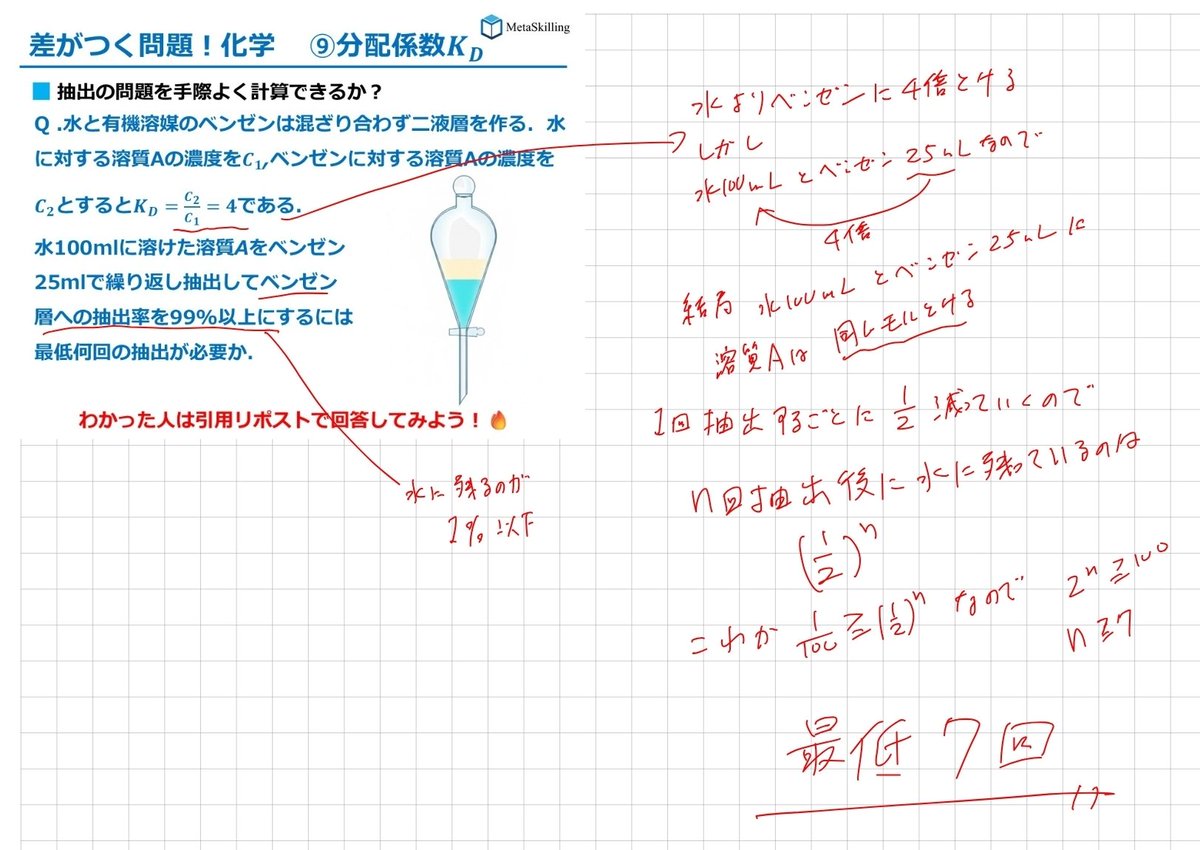 MetaSkilling
差がつく問題！化学　⑨分配係数K_D
■ 抽出の問題を手際よく計算できるか？
Q .水と有機溶媒のベンゼンは混ざり合わず二液層を作る．水
に対する溶質Aの濃度をC₁,ベンゼンに対する溶質Aの濃度を
C₂とするとK_D = C₂/C₁ = 4である．
水100mlに溶けた溶質Aをベンゼン
25mlで繰り返し抽出してベンゼン
層への抽出率を99%以上にするには
最低何回の抽出が必要か．
わかった人は引用リポストで回答してみよう！🔥
水に残るのが
1% 以下
水よりベンゼンに4倍とける
しかし
水100mLとベンゼン25mLなので
4倍
結局 水100mLとベンゼン25mLに
溶質Aは 同じモルとける
1回抽出するごとに 1/2 減っていくので
n回抽出後に水に残っているのは
(1/2)ⁿ
これが 1/100 ≧ (1/2)ⁿ なので 2ⁿ ≧ 100
n ≧ 7
最低 7回